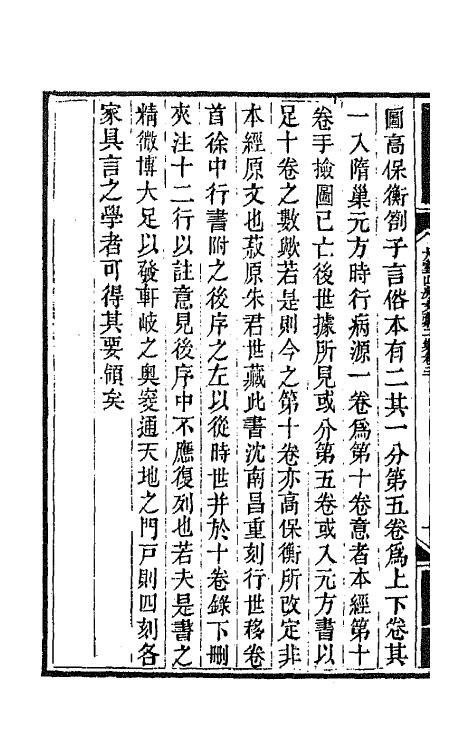 圖高保衡劄子言俗本有二其一分第五卷爲上下卷其
一入隋巢元方時行病源一卷爲第十卷意者本經第十
卷手撿圖已亡後世據所見或分第五卷或入元方書以
足十卷之數歟若是則今之第十卷亦高保衡所改定非
本經原文也菽原朱君世藏此書沈南昌重刻行世移卷
首徐中行書附之後序之左以從時世并於十卷錄下刪
夾注十二行以註意見後序中不應復列也若夫是書之
精微博大足以發軒岐之奧窔通天地之門戸則四刻各
家具言之學者可得其要領矣